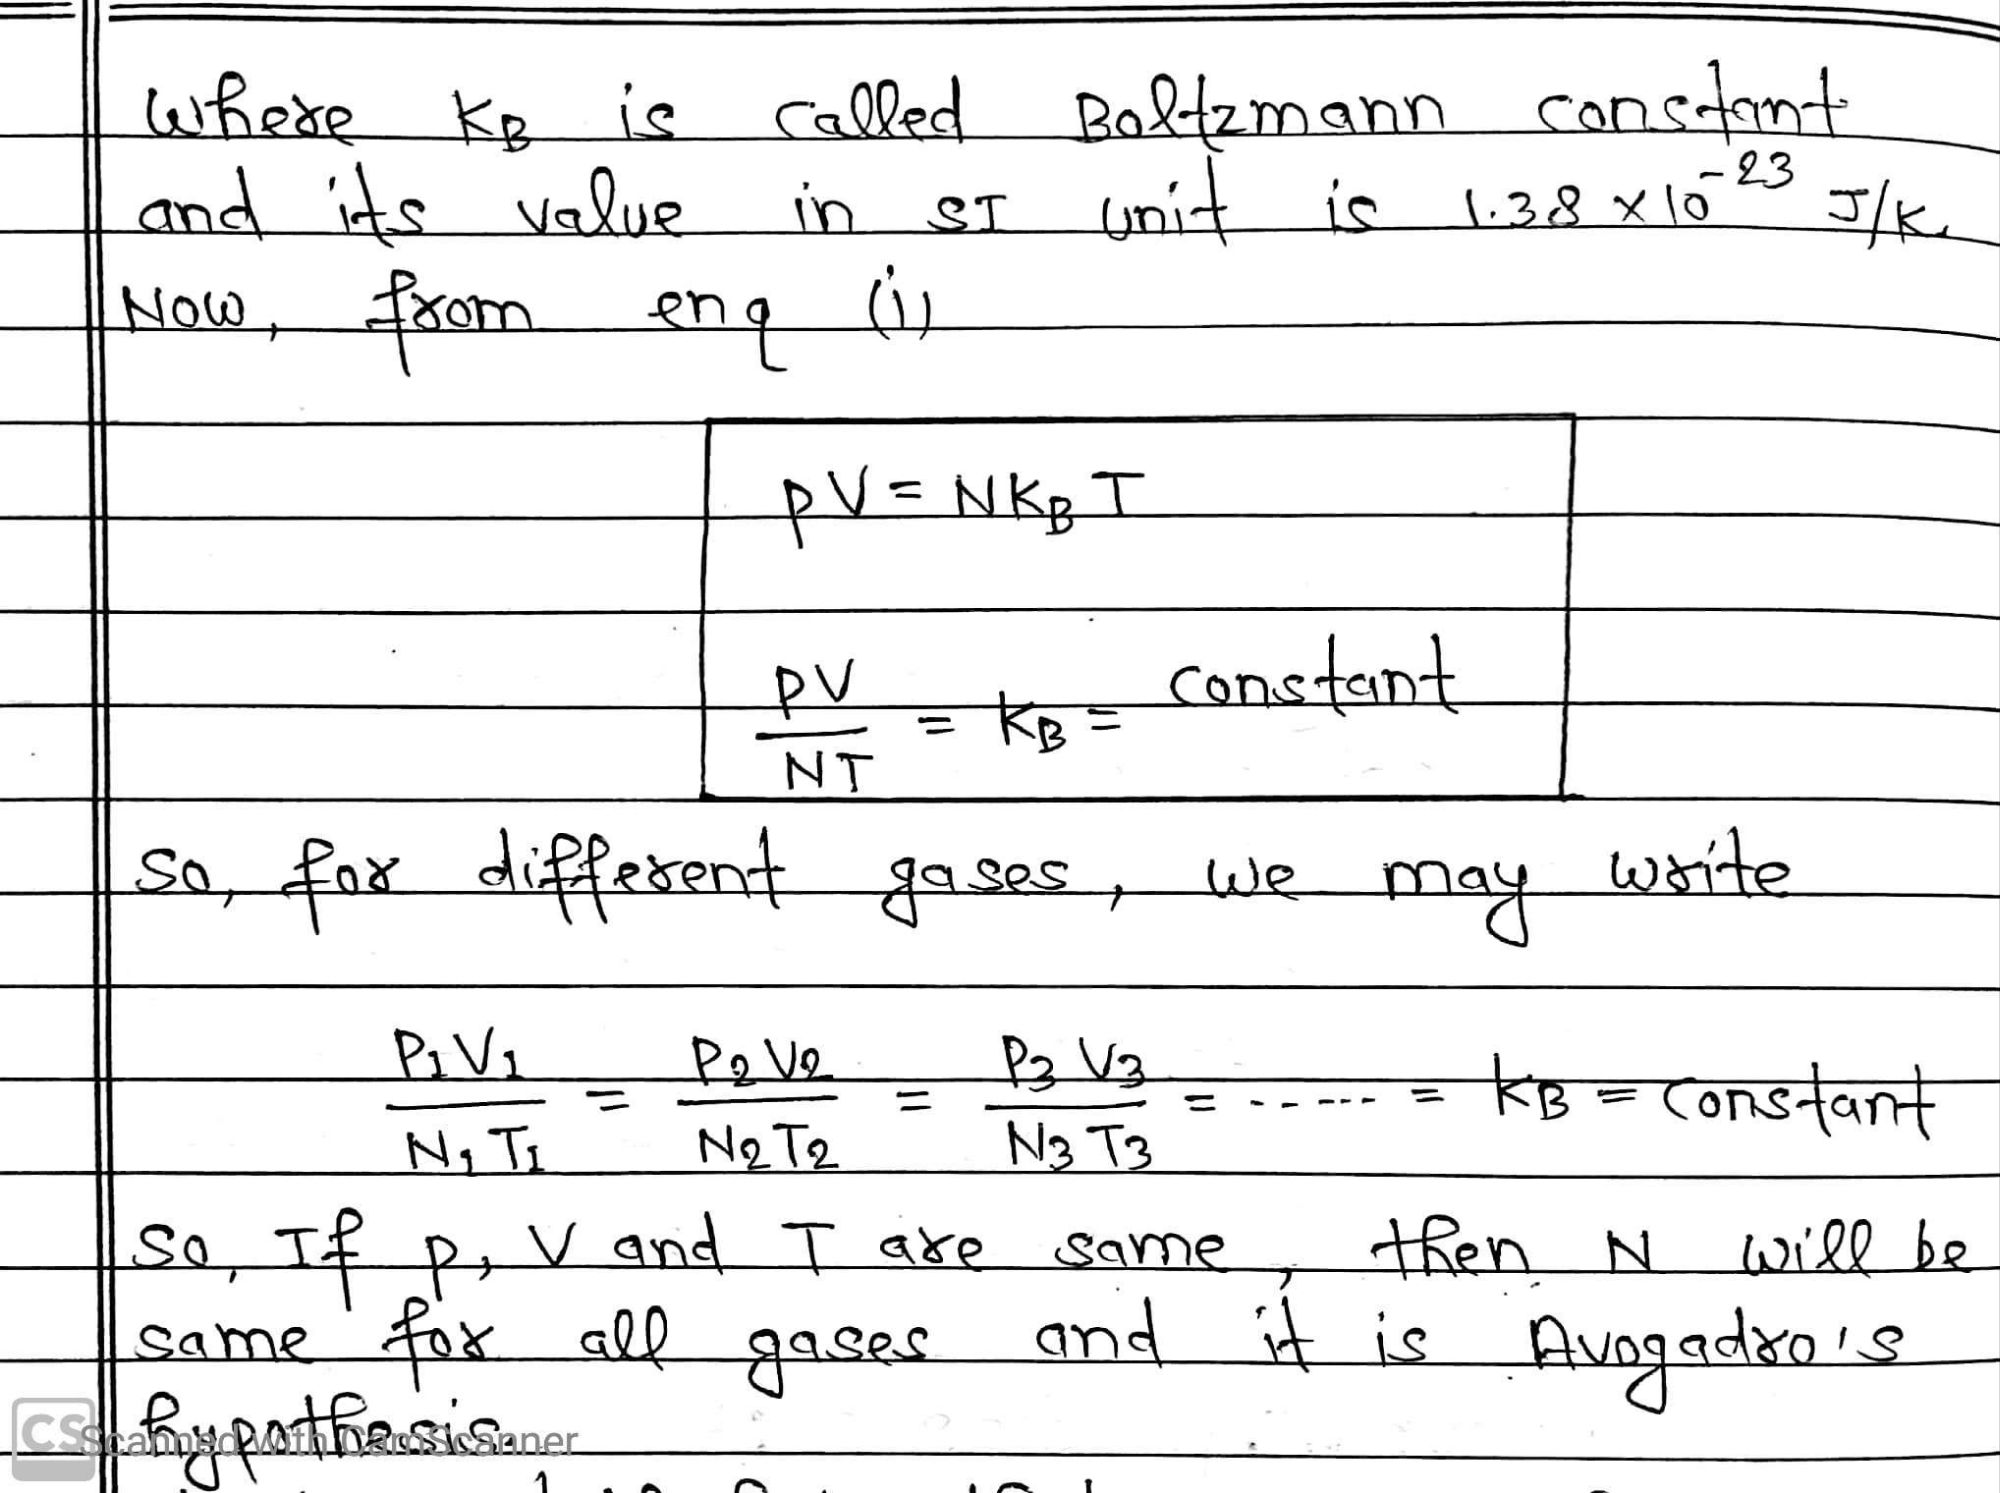 where KB is called Boltzmann constant
and its value in SI unit is 1.38 × 10⁻²³ J/K.
Now, from enq (i)
PV = NKBT
PV/NT = KB = constant
so, for different gases, we may write
P1V1/N1T1 = P2V2/N2T2 = P3V3/N3T3 = ------ = KB = constant
so, If P, V and T are same, then N will be
same for all gases and it is Avogadro's
hypothesis.
CS Scanned with CamScanner